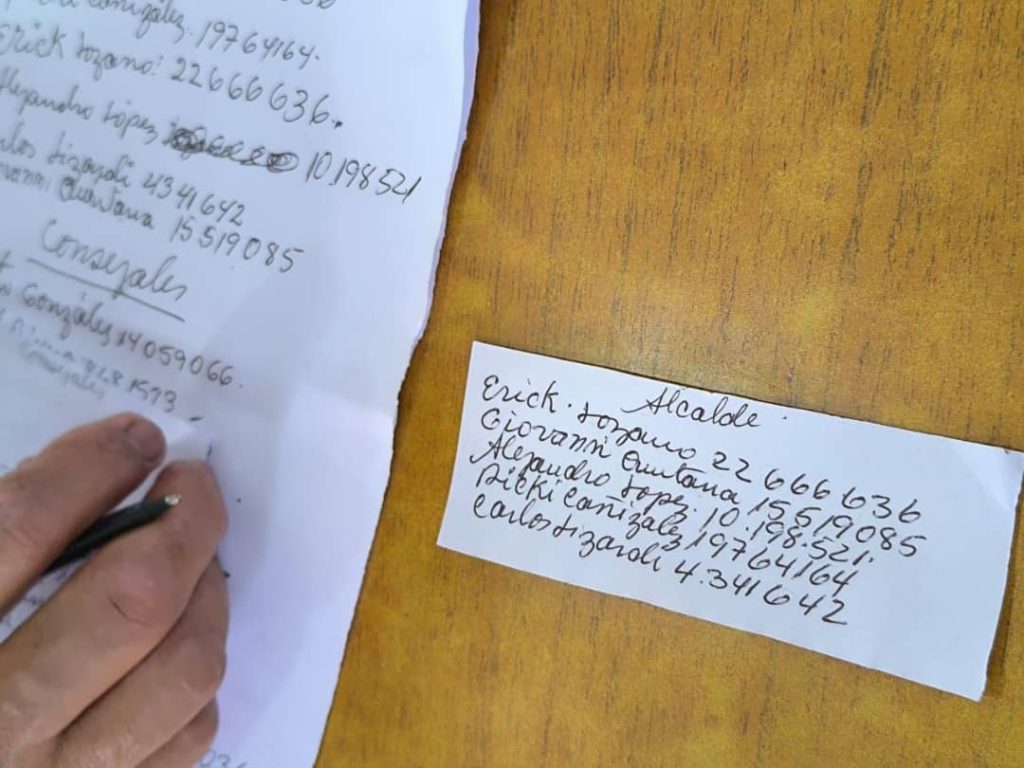 Cañizález. 19764164.
Erick Lozano: 22666636.
Alejandro López 10.198521
Lizardi 4341642
Quintana 15519085
Consejales
González 14059066.
Alcalde.
Erick. Lozano 22666636
Giovanni Quintana 15519085
Alejandro Lopez. 10.198.521.
Ricki Cañizalez 19764164
Carlos Lizardi 4.341642